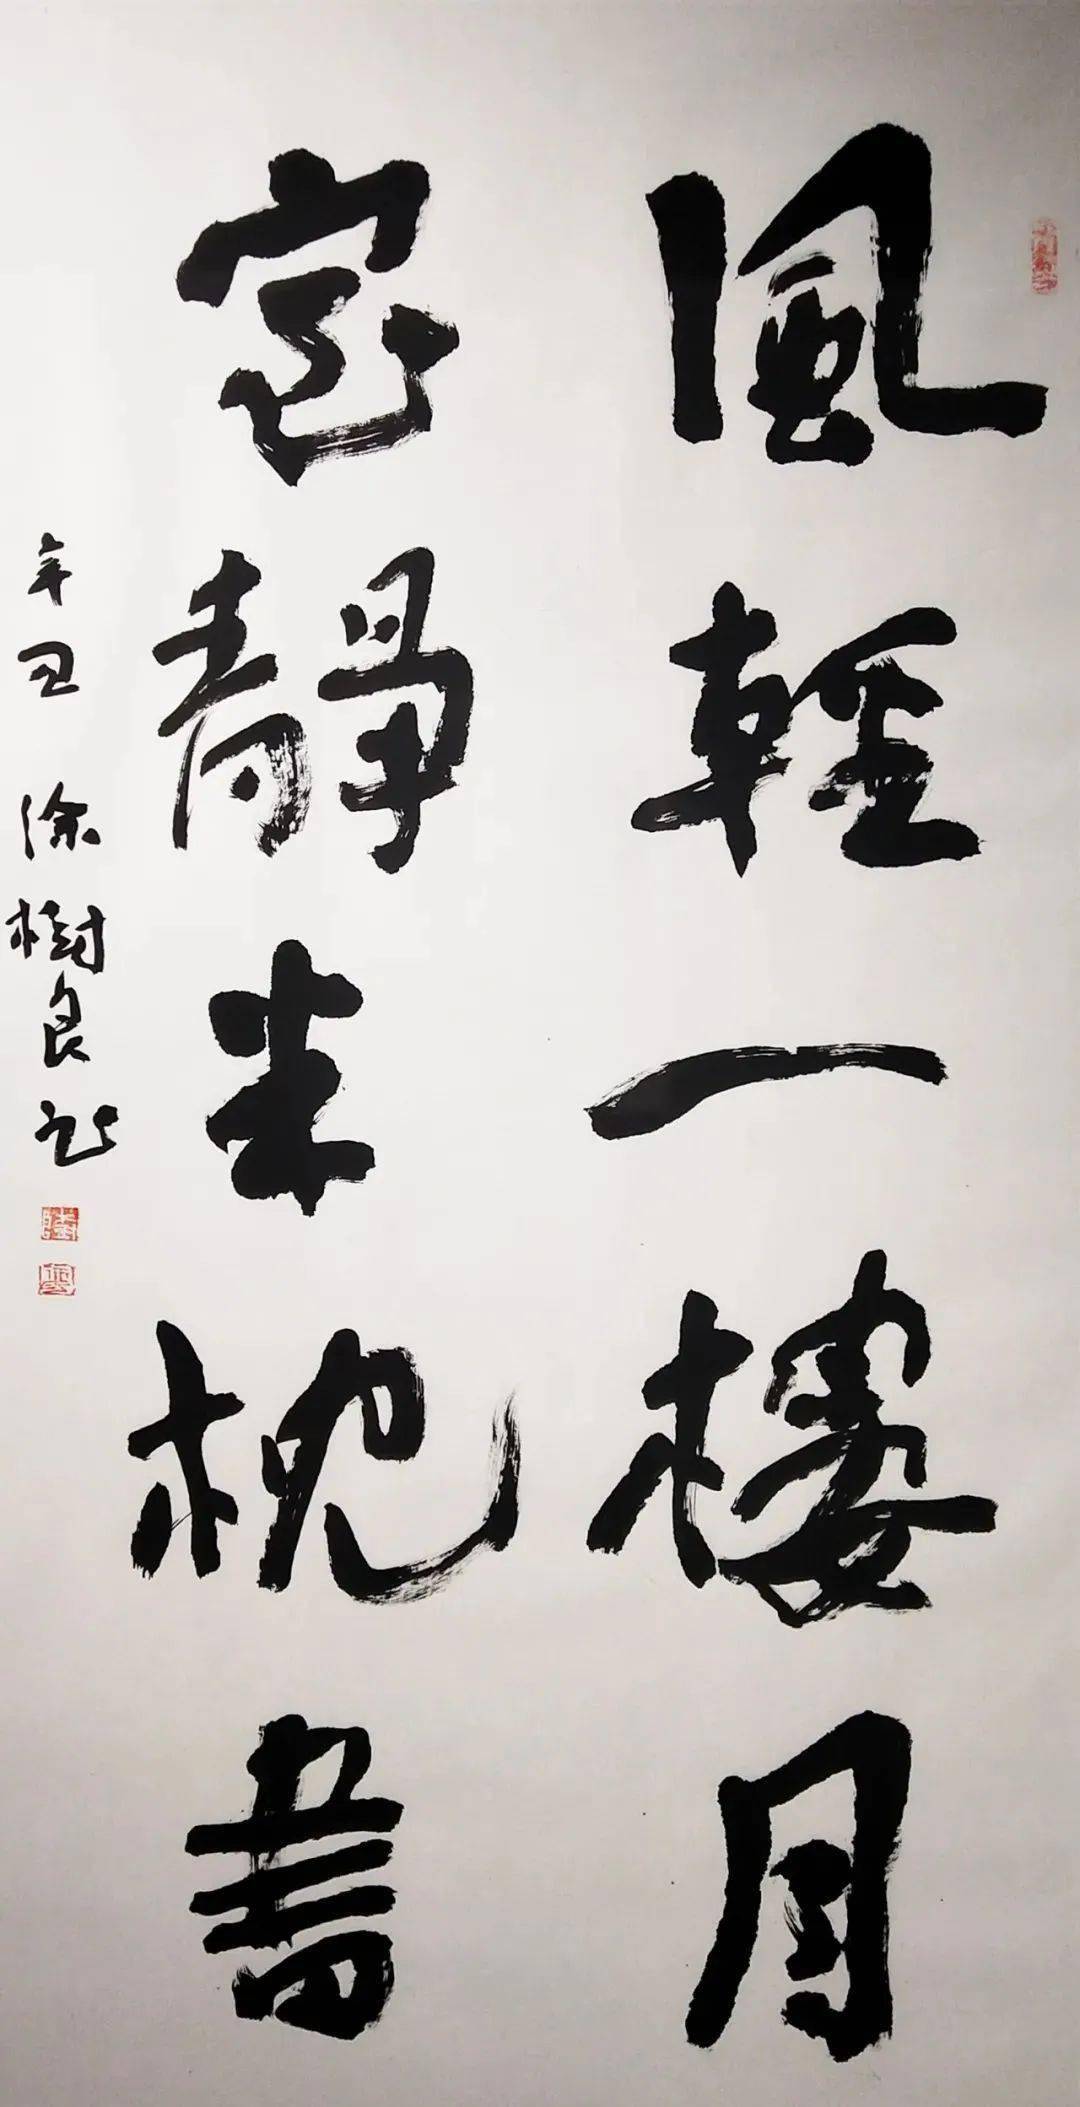 風輕一樓月
室靜半枕書
辛丑 徐樹良書